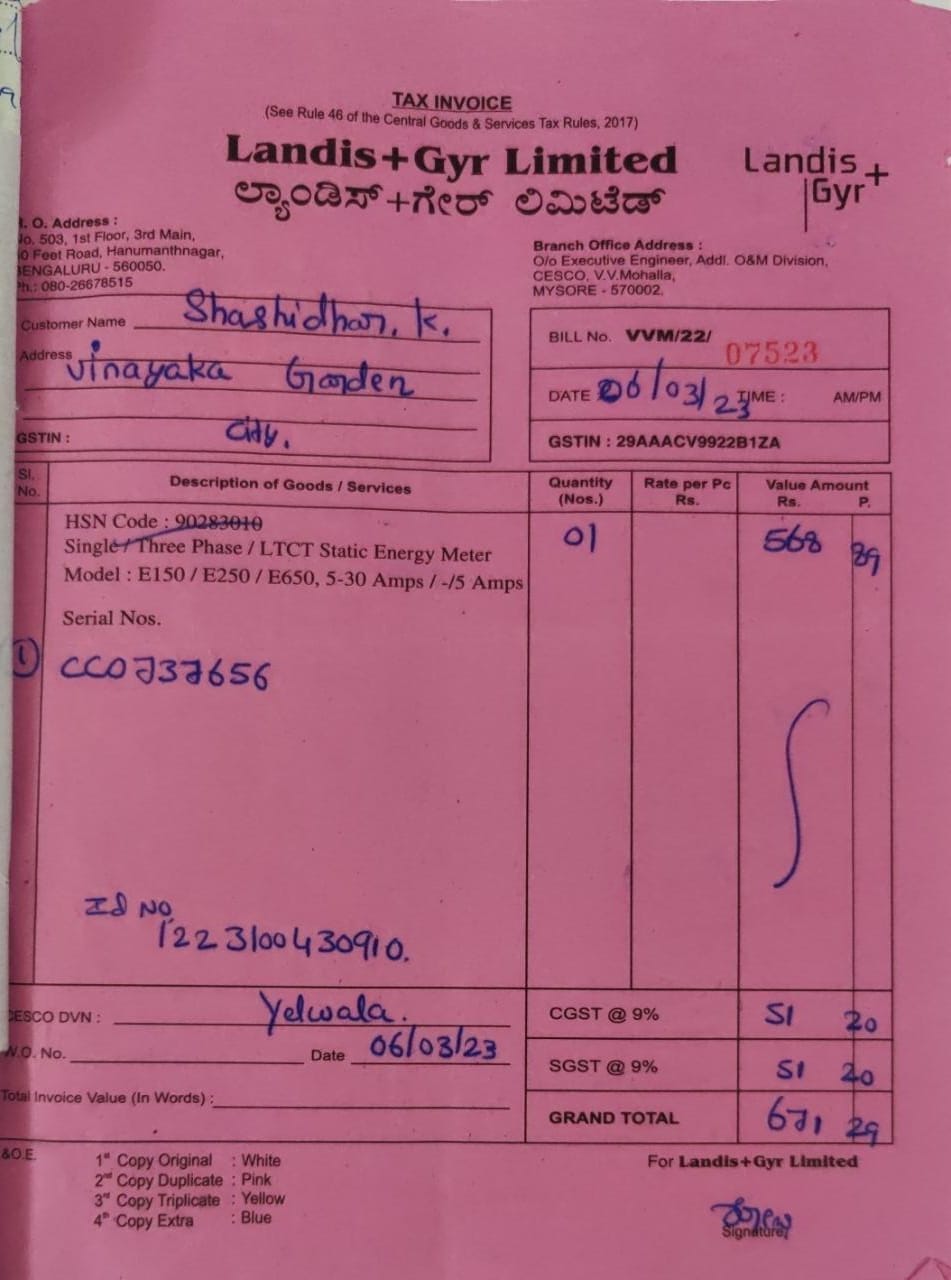 TAX INVOICE
(See Rule 46 of the Central Goods & Services Tax Rules, 2017)
Landis+Gyr Limited
ಲ್ಯಾಂಡಿಸ್+ಗೇರ್ ಲಿಮಿಟೆಡ್
Landis+
Gyr
. O. Address :
o. 503, 1st Floor, 3rd Main,
0 Feet Road, Hanumanthnagar,
BENGALURU - 560050.
Ph.: 080-26678515
Branch Office Address :
O/o Executive Engineer, Addl. O&M Division,
CESCO, V.V.Mohalla,
MYSORE - 570002.
Customer Name Shashidhar. K.
Address Vinayaka Garden
GSTIN : City.
BILL No. VVM/22/ 07523
DATE 06/03/23 TIME : AM/PM
GSTIN : 29AAACV9922B1ZA
Sl. No. Description of Goods / Services Quantity (Nos.) Rate per Pc Rs. Value Amount Rs. P.
HSN Code : 90283010 01 568 89
Single / Three Phase / LTCT Static Energy Meter
Model : E150 / E250 / E650, 5-30 Amps / -/5 Amps
Serial Nos.
1 CC0737656
Id No.
1223100430910.
CESCO DVN : Yelwala.
CGST @ 9% 51 20
W.O. No. Date 06/03/23
SGST @ 9% 51 20
Total Invoice Value (In Words) :
GRAND TOTAL 671 29
&O.E.
1st Copy Original : White
2nd Copy Duplicate : Pink
3rd Copy Triplicate : Yellow
4th Copy Extra : Blue
For Landis+Gyr Limited
Signature